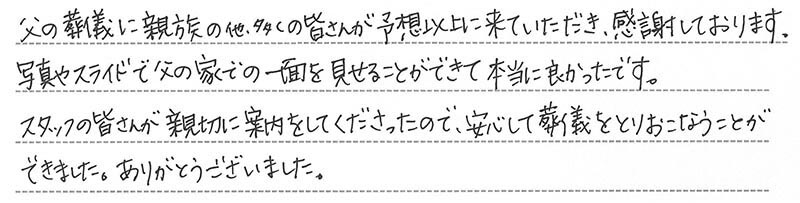 父の葬儀に親族の他、多くの皆さんが予想以上に来ていただき、感謝しております。
写真やスライドで父の家での一面を見せることができて本当に良かったです。
スタッフの皆さんが親切に案内をしてくださったので、安心して葬儀をとりおこなうことが
できました。ありがとうございました。